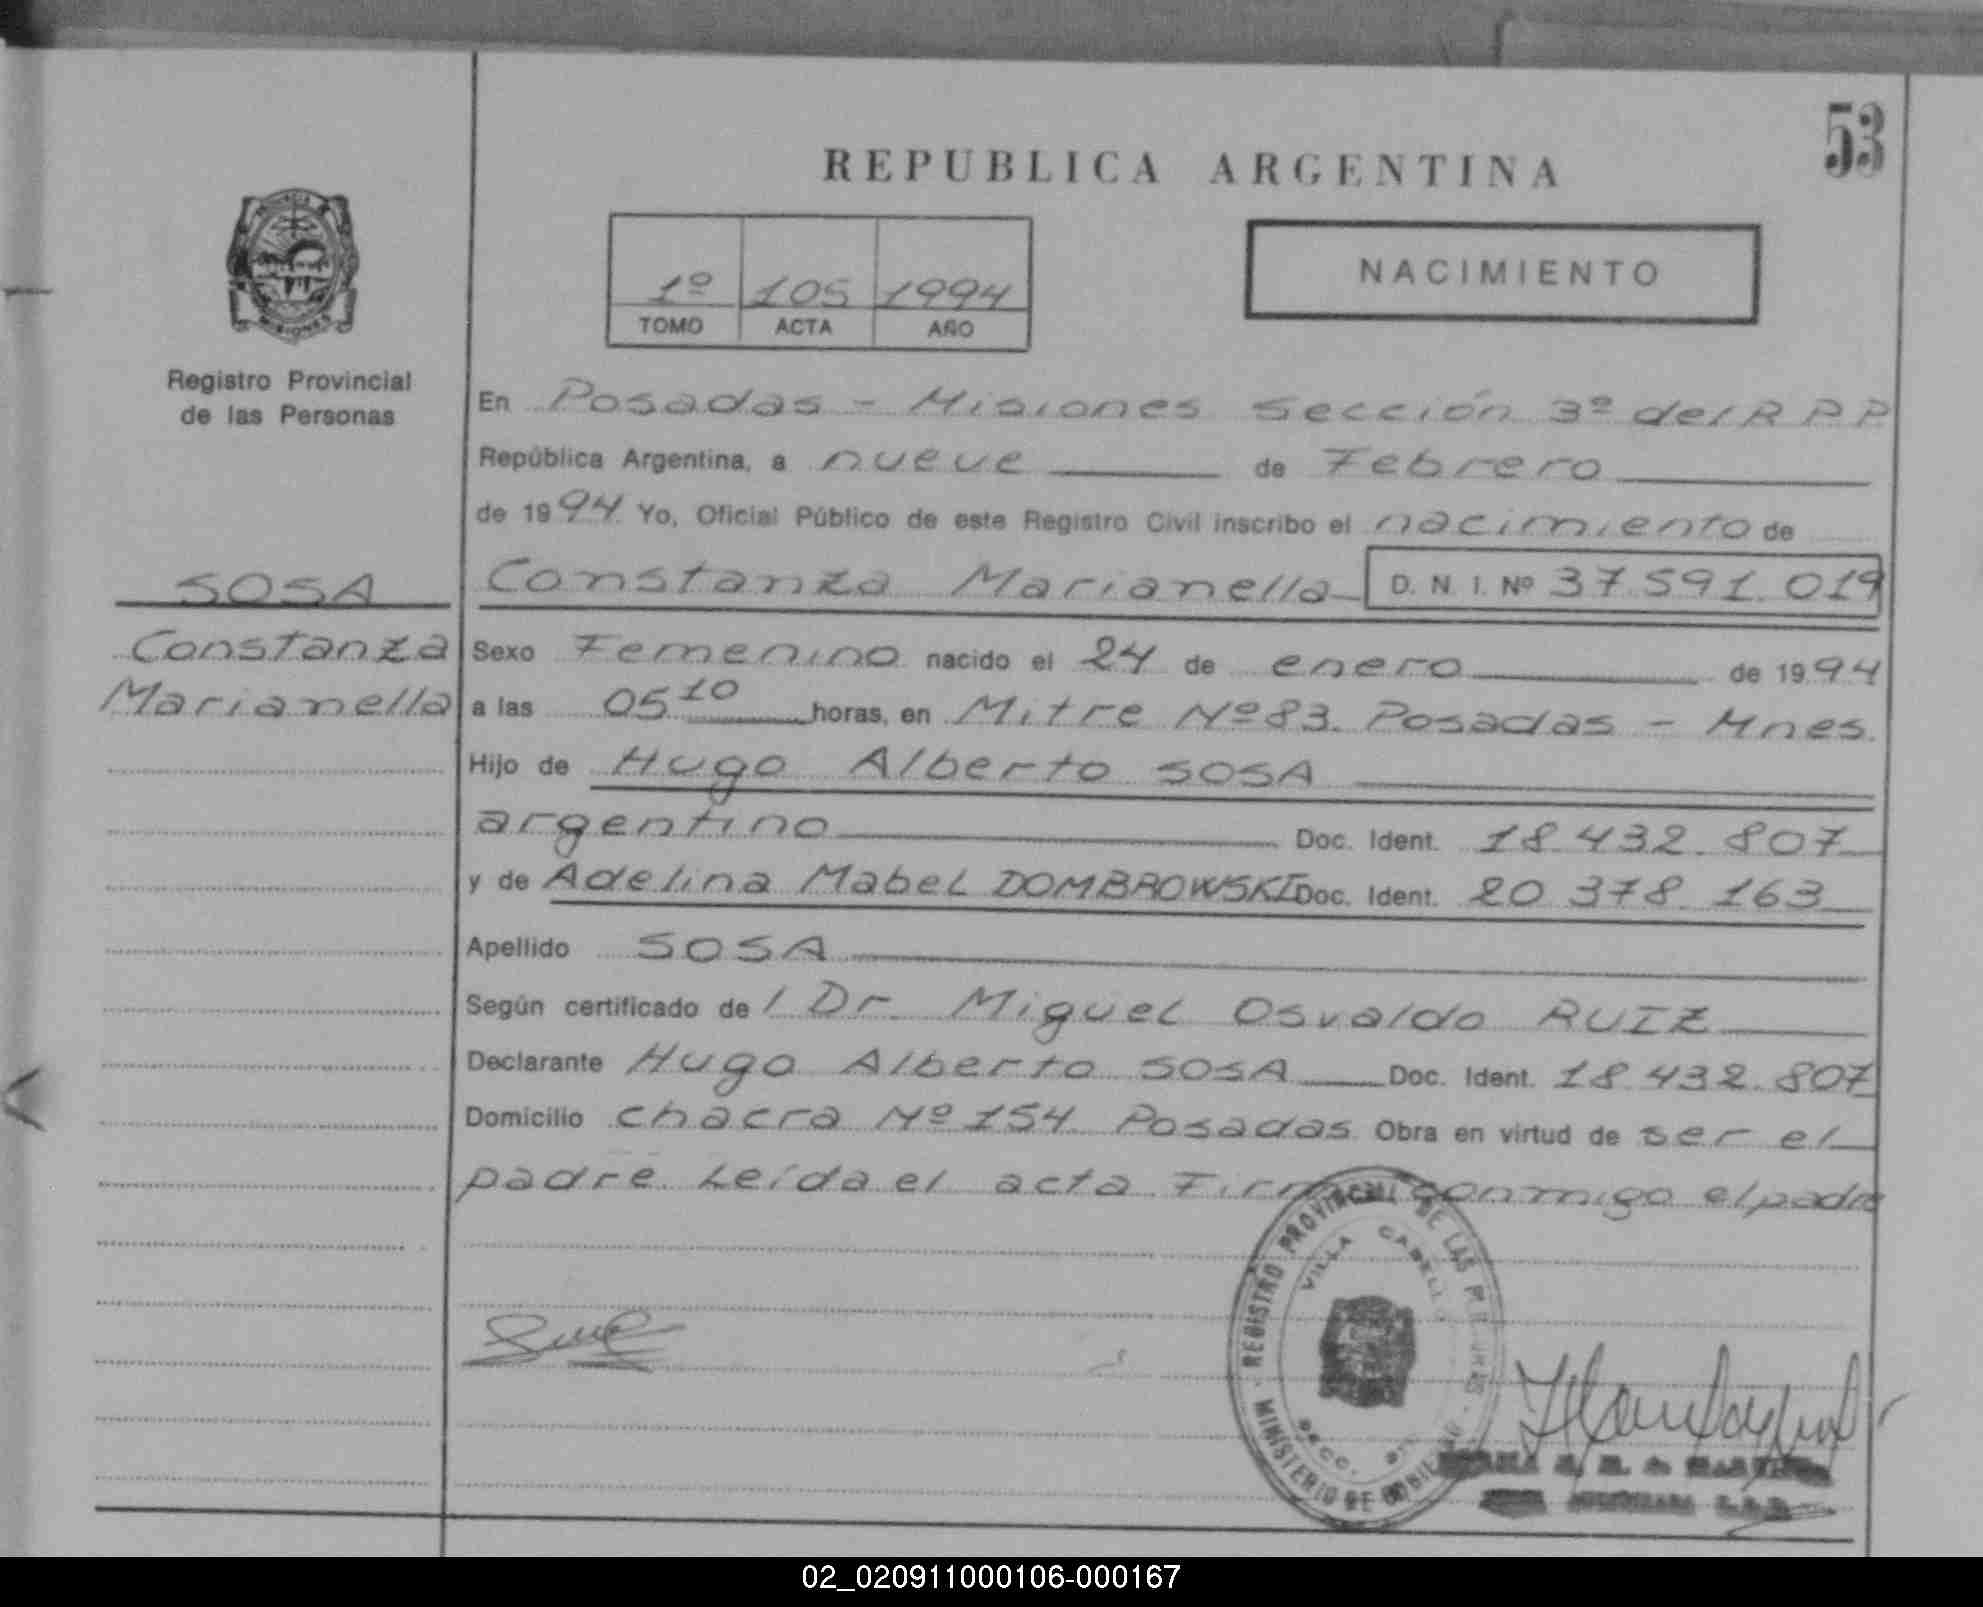 53
REPUBLICA ARGENTINA
1º 105 1994
TOMO ACTA AÑO
NACIMIENTO
PROVINCIA DE
MISIONES
Registro Provincial
de las Personas
SOSA
Constanza
Marianella
En Posadas - Misiones Sección 3º del R P P
República Argentina, a nueve de Febrero
de 1994 Yo, Oficial Público de este Registro Civil inscribo el nacimiento de
Constanza Marianella D. N. I. Nº 37.591.019
Sexo Femenino nacido el 24 de enero de 1994
a las 05 10 horas, en Mitre Nº 83. Posadas - Mnes.
Hijo de Hugo Alberto SOSA
argentino Doc. Ident. 18.432.807
y de Adelina Mabel DOMBROWSKI Doc. Ident. 20.378.163
Apellido SOSA
Según certificado de l Dr. Miguel Osvaldo RUIZ
Declarante Hugo Alberto SOSA Doc. Ident. 18.432.807
Domicilio chacra Nº 154. Posadas Obra en virtud de ser el
padre. Leída el acta Firma conmigo el padre
REGISTRO PROVINCIAL DE LAS PERSONAS
VILLA CABELLO
SECC.
MINISTERIO DE GOBIERNO
02_020911000106-000167